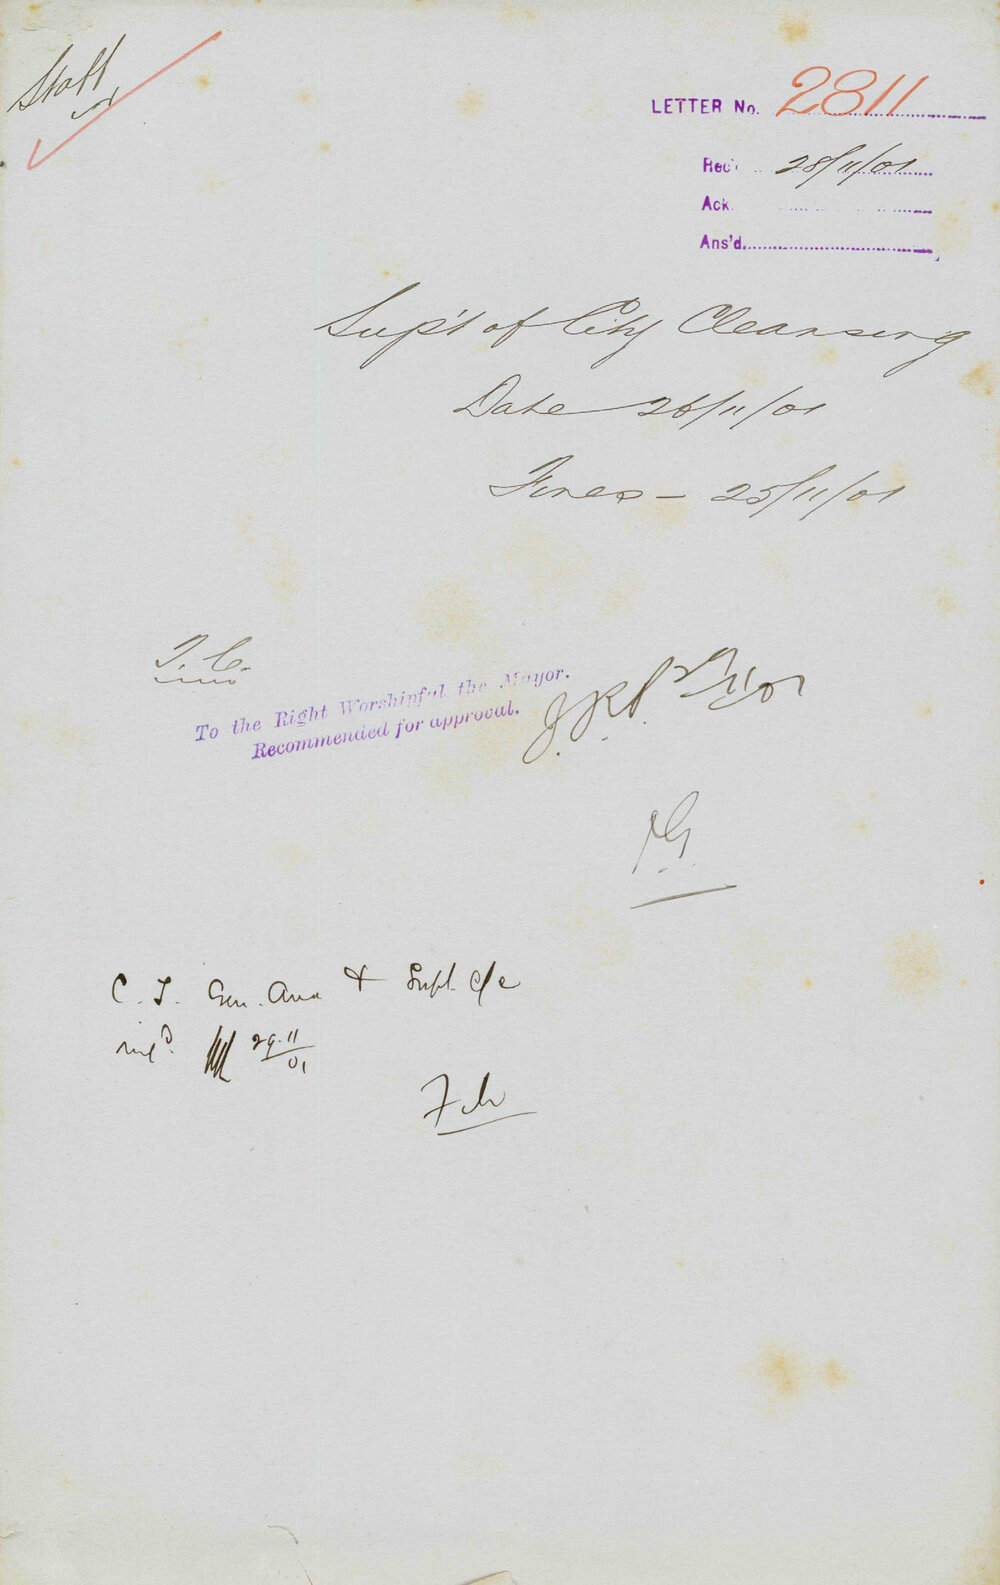 Staff
LETTER No. 2811
Rec'd 28/11/01
Ack.
Ans'd.
Sup't of City Cleansing
Date 26/11/01
Fines - 25/11/01
T. C.
To the Right Worshipful the Mayor.
Recommended for approval.
J.R.P. 29/11/01
C. T. Gen. Ava & Supt. C/c
29.11
01